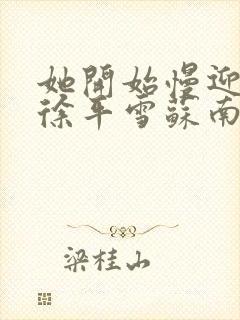 她開始慢迎
徐平雪蘇南
梁桂山